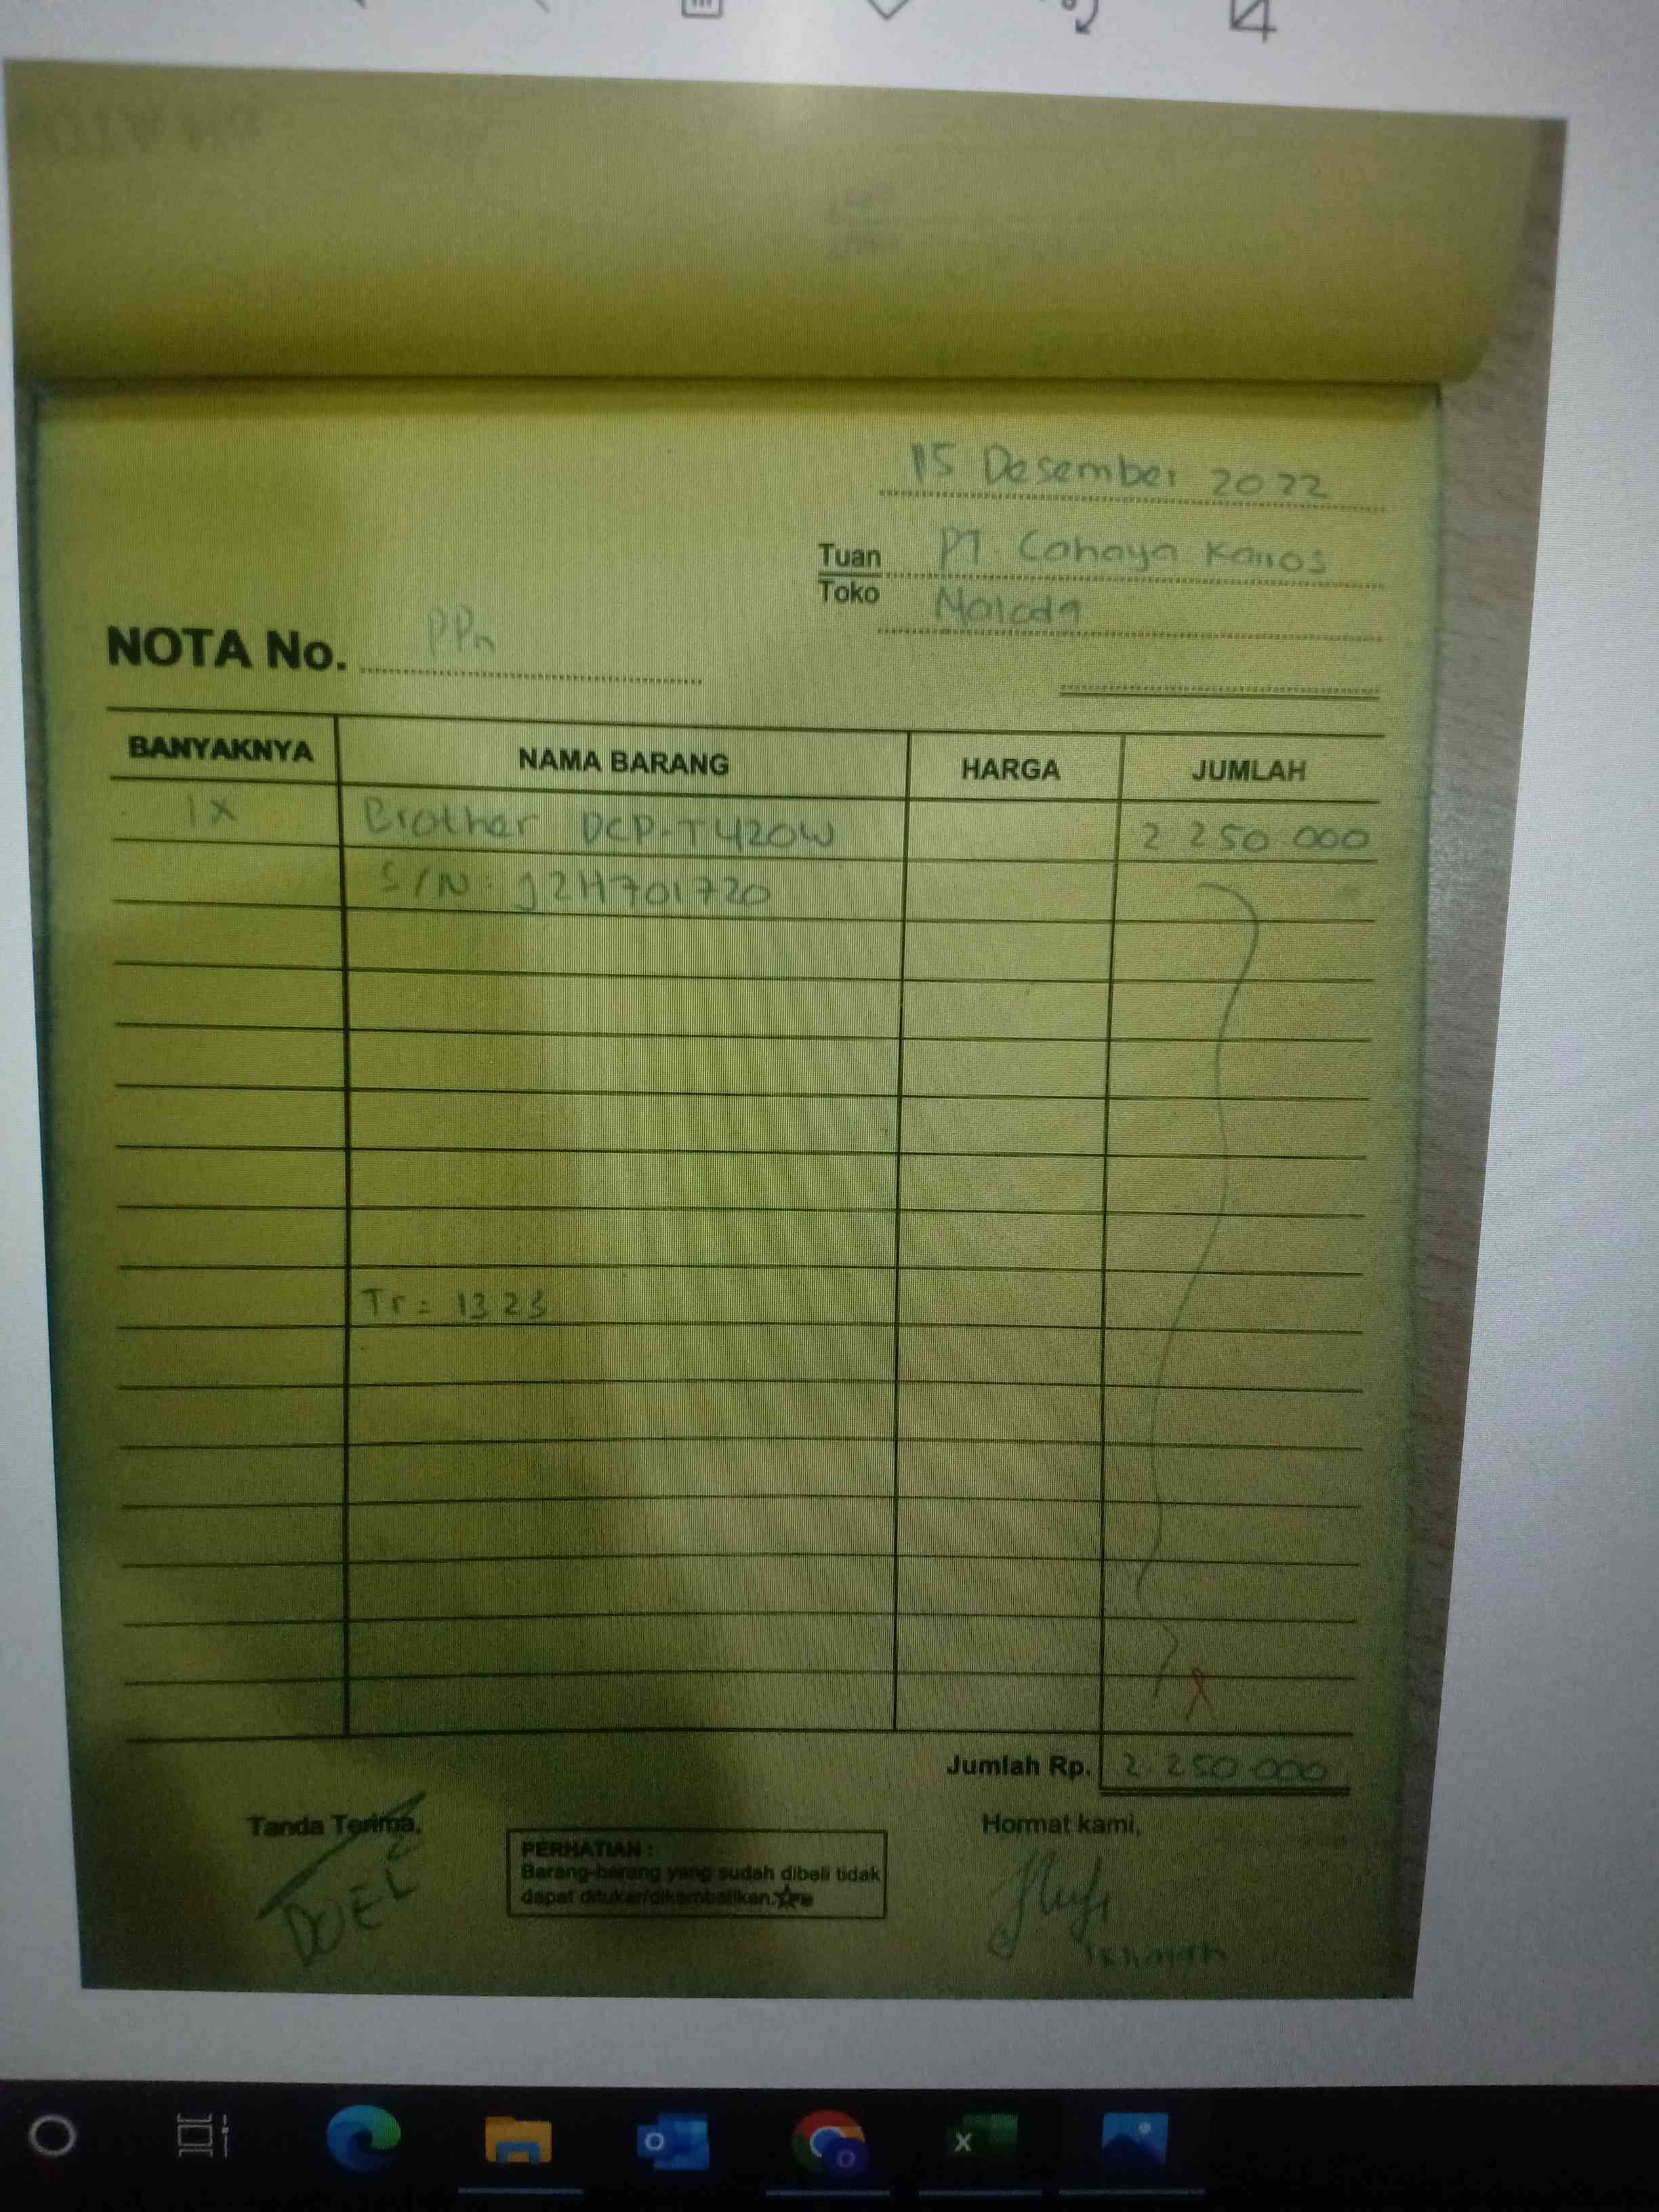 15 Desember 2022
Tuan PT. Cahaya Kairos
Toko
NOTA No. PPn
BANYAKNYA NAMA BARANG HARGA JUMLAH
1X Brother DCP-T420W 2 250 000
S/N : J2H701720
Tr = 1323
Jumlah Rp. 2.250.000
Tanda Terima, Hormat kami,
PERHATIAN :
Barang-barang yang sudah dibeli tidak
dapat ditukar/dikembalikan.
DOEL